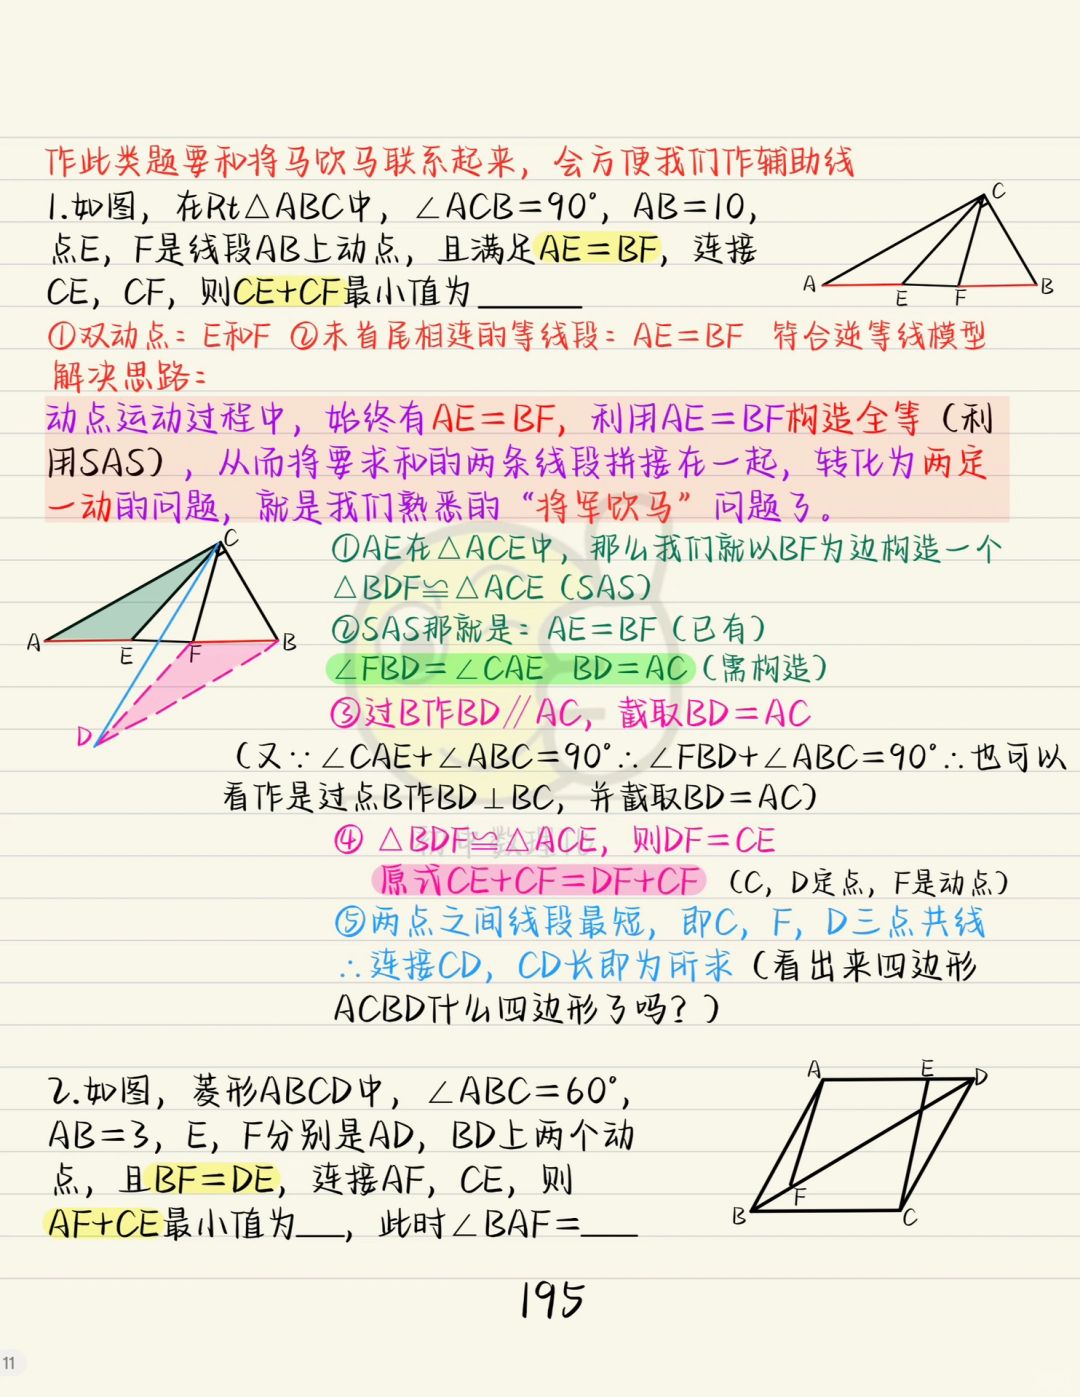 作此类题要和将马饮马联系起来，会方便我们作辅助线
1.如图，在Rt△ABC中，∠ACB=90°，AB=10，
点E，F是线段AB上动点，且满足AE=BF，连接
CE，CF，则CE+CF最小值为______
C
A
E
F
B
①双动点：E和F ②未首尾相连的等线段：AE=BF 符合逆等线模型
解决思路：
动点运动过程中，始终有AE=BF，利用AE=BF构造全等（利
用SAS），从而将要求和的两条线段拼接在一起，转化为两定
一动的问题，就是我们熟悉的“将军饮马”问题了。
C
A
E
F
B
D
①AE在△ACE中，那么我们就以BF为边构造一个
△BDF≌△ACE（SAS）
②SAS那就是：AE=BF（已有）
∠FBD=∠CAE BD=AC（需构造）
③过B作BD∥AC，截取BD=AC
（又∵∠CAE+∠ABC=90°∴∠FBD+∠ABC=90°∴也可以
看作是过点B作BD⊥BC，并截取BD=AC）
④ △BDF≌△ACE，则DF=CE
原式CE+CF=DF+CF （C，D定点，F是动点）
⑤两点之间线段最短，即C，F，D三点共线
∴连接CD，CD长即为所求（看出来四边形
ACBD什么四边形了吗？）
2.如图，菱形ABCD中，∠ABC=60°，
AB=3，E，F分别是AD，BD上两个动
点，且BF=DE，连接AF，CE，则
AF+CE最小值为___，此时∠BAF=___
A
E
D
F
B
C
195
11